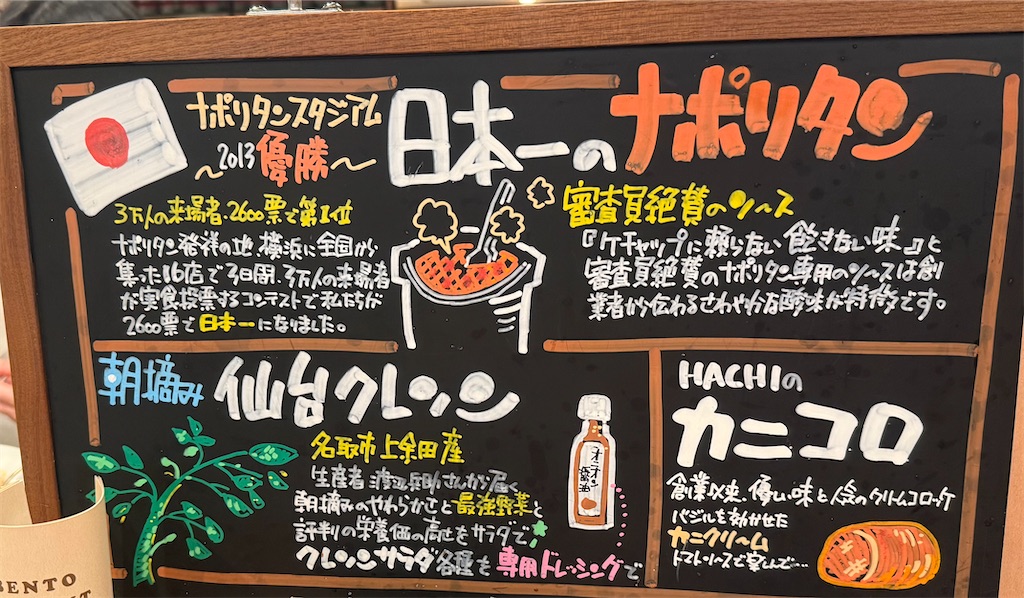 ナポリタンスタジアム
〜2013優勝〜
日本一のナポリタン
3万人の来場者・2600票で第1位
ナポリタン発祥の地、横浜に全国から
集った16店で3日間、3万人の来場者
が実食投票するコンテストで私たちが
2600票で日本一になりました。
審査員絶賛のソース
『ケチャップに頼らない飽きない味』と
審査員絶賛のナポリタン専用のソースは創
業者から伝わるさわやかな酸味が特徴です。
朝摘み 仙台クレソン
名取市上余田産
生産者 渡辺兵助さんから届く
朝摘みのやわらかさと最強野菜と
評判の栄養価の高さをサラダで
クレソンサラダ各種を専用ドレッシングで
オニオン
醤油
HACHIの
カニコロ
創業以来、優しい味と人気のクリームコロッケ
バジルを効かせた
カニクリーム
トマトソースで包んで…
BENTO